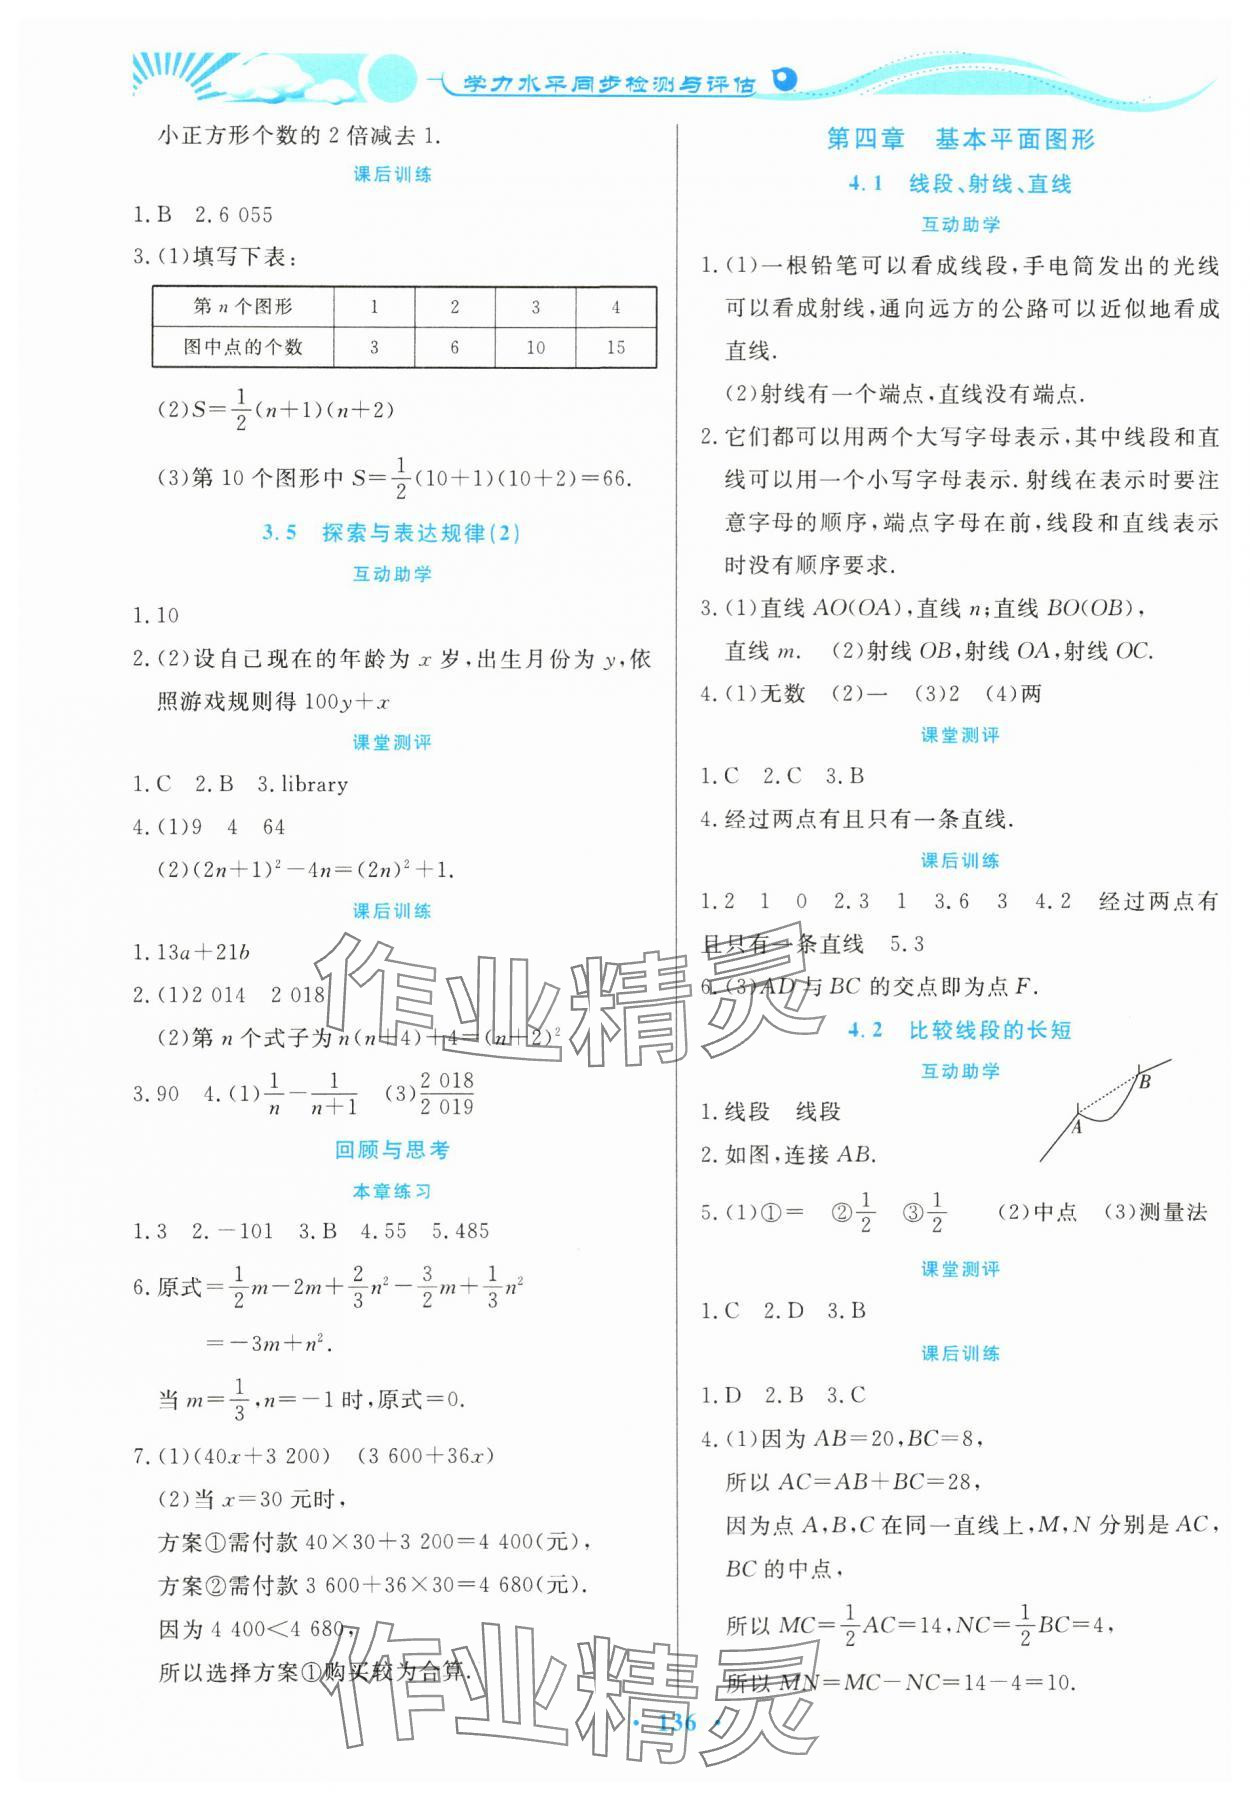 学力水平同步检测与评估
小正方形个数的2倍减去1.
课后训练
1.B 2.6 055
3.(1)填写下表:
第n个图形 1 2 3 4
图中点的个数 3 6 10 15
(2)S=1/2(n+1)(n+2)
(3)第10个图形中S=1/2(10+1)(10+2)=66.
3.5 探索与表达规律(2)
互动助学
1.10
2.(2)设自己现在的年龄为x岁,出生月份为y,依
照游戏规则得100y+x
课堂测评
1.C 2.B 3.library
4.(1)9 4 64
(2)(2n+1)²-4n=(2n)²+1.
课后训练
1.13a+21b
2.(1)2 014 2 018
(2)第n个式子为n(n+4)+4=(n+2)²
3.90 4.(1)1/n-1/(n+1) (3)2 018/2 019
回顾与思考
本章练习
1.3 2.-101 3.B 4.55 5.485
6.原式=1/2m-2m+2/3n²-3/2m+1/3n²
=-3m+n².
当m=1/3,n=-1时,原式=0.
7.(1)(40x+3 200) (3 600+36x)
(2)当x=30元时,
方案①需付款40×30+3 200=4 400(元),
方案②需付款3 600+36×30=4 680(元).
因为4 400<4 680,
所以选择方案①购买较为合算.
第四章 基本平面图形
4.1 线段、射线、直线
互动助学
1.(1)一根铅笔可以看成线段,手电筒发出的光线
可以看成射线,通向远方的公路可以近似地看成
直线.
(2)射线有一个端点,直线没有端点.
2.它们都可以用两个大写字母表示,其中线段和直
线可以用一个小写字母表示.射线在表示时要注
意字母的顺序,端点字母在前,线段和直线表示
时没有顺序要求.
3.(1)直线AO(OA),直线n;直线BO(OB),
直线m. (2)射线OB,射线OA,射线OC.
4.(1)无数 (2)一 (3)2 (4)两
课堂测评
1.C 2.C 3.B
4.经过两点有且只有一条直线.
课后训练
1.2 1 0 2.3 1 3.6 3 4.2 经过两点有
且只有一条直线 5.3
6.(3)AD与BC的交点即为点F.
4.2 比较线段的长短
互动助学
1.线段 线段
2.如图,连接AB.
A
B
5.(1)①= ②1/2 ③1/2 (2)中点 (3)测量法
课堂测评
1.C 2.D 3.B
课后训练
1.D 2.B 3.C
4.(1)因为AB=20,BC=8,
所以AC=AB+BC=28,
因为点A,B,C在同一直线上,M,N分别是AC,
BC的中点,
所以MC=1/2AC=14,NC=1/2BC=4,
所以MN=MC-NC=14-4=10.
作业精灵
作业精灵
· 136 ·